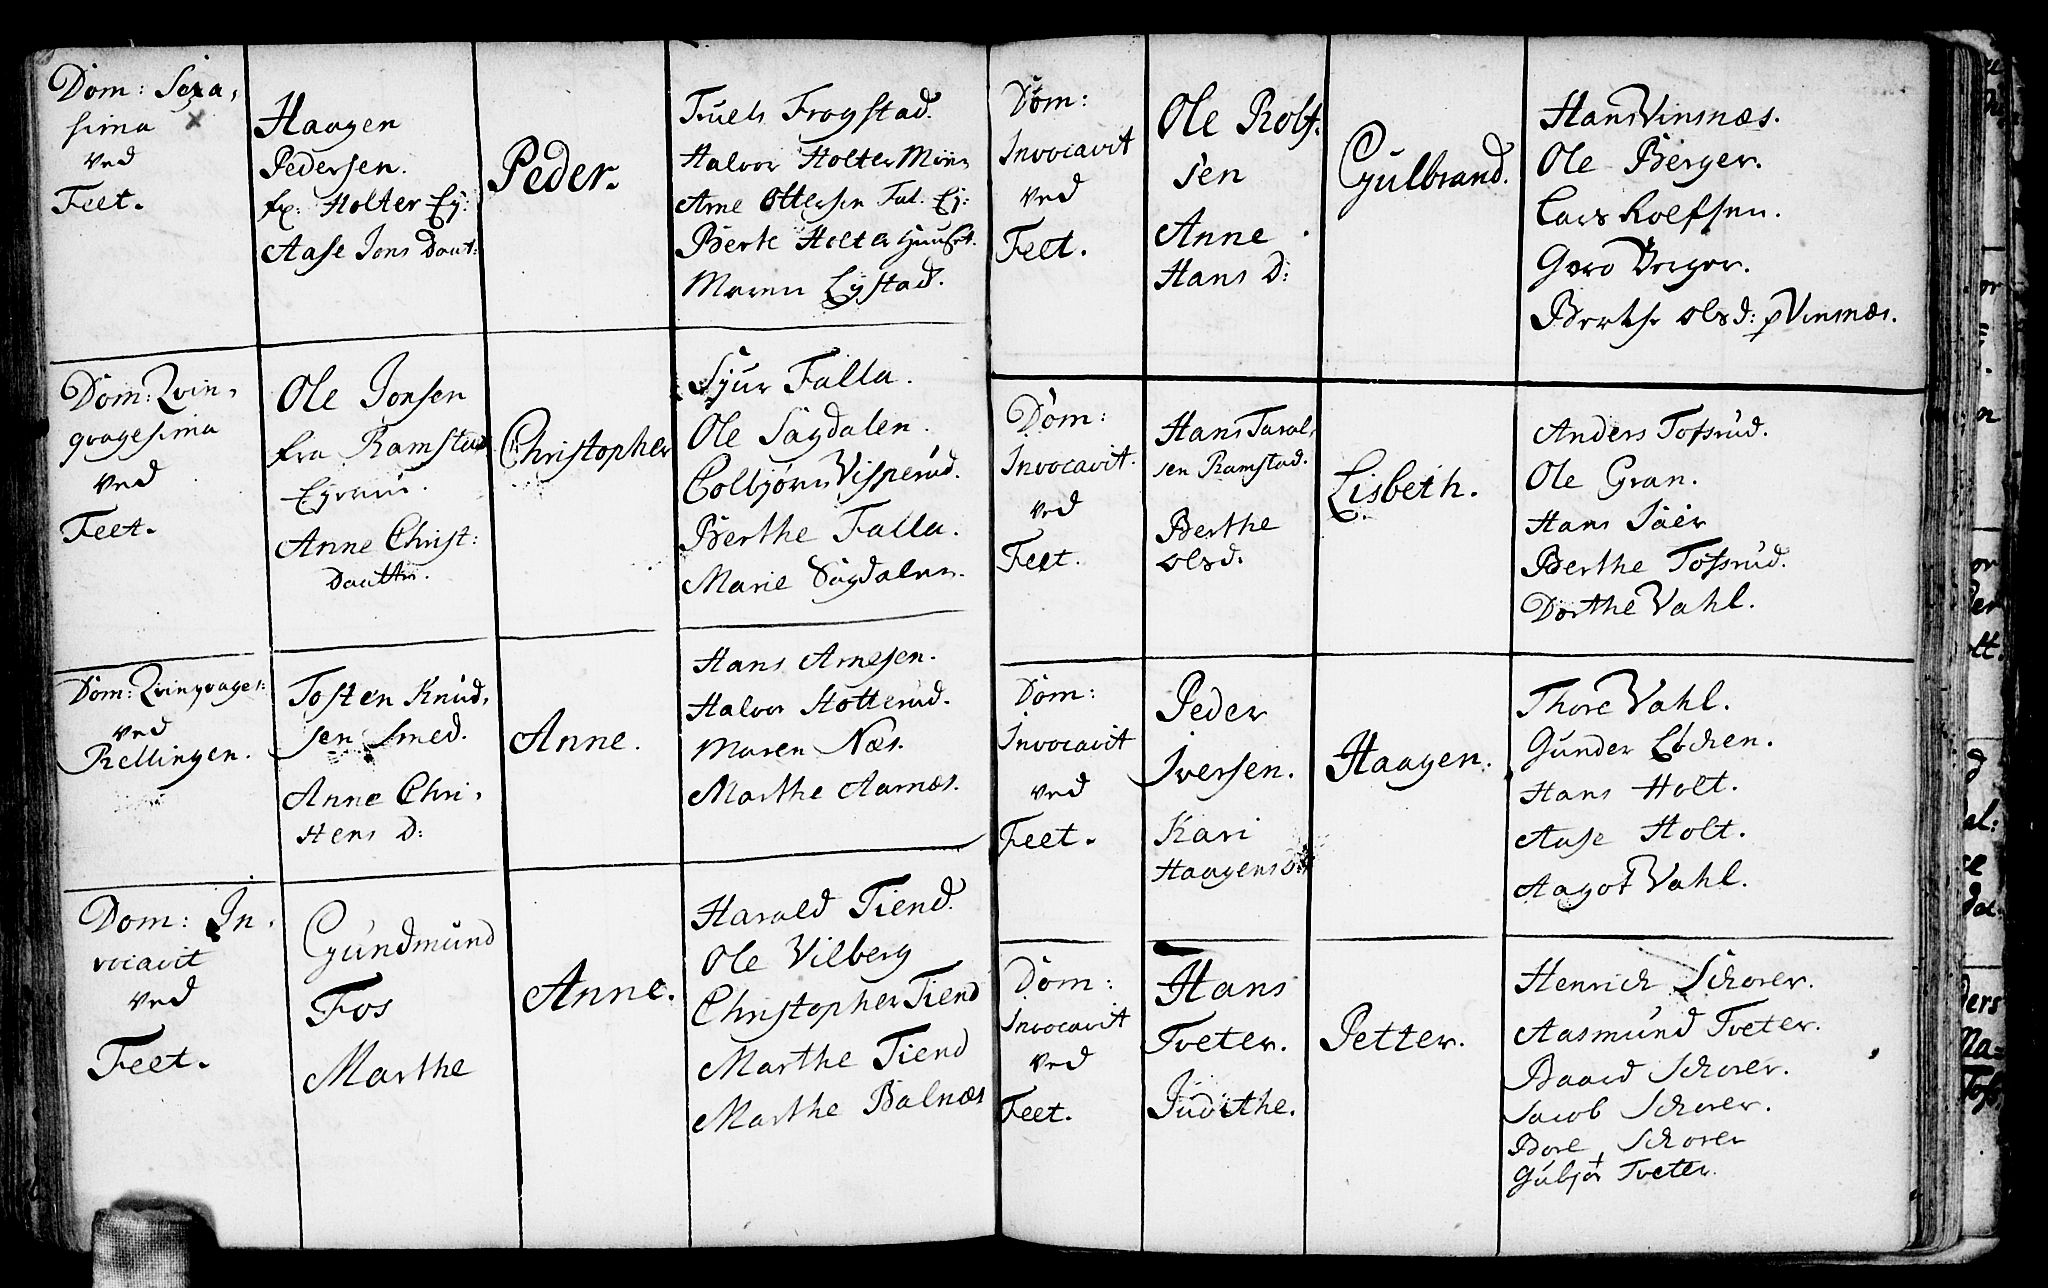 Dom: Sexa,
sima
ved
Feet.
Haagen
Pedersen.
fr: Holter Ej:
Aase Jons Daat:
Peder.
Truels Frogstad.
Halvor Holter
Arne Ottersen Fal. Ej:
Berte Holter
Maren Lystad.
Dom: Qvin,
qvagesima
ved
Feet.
Ole Jonsen
fra Ramstad
Anne Christ:
Daatter.
Christopher
Sjur Falla.
Ole Sagdalen.
Colbjørn Visperud.
Berthe Falla.
Marie Sagdalen.
Dom: Qvinqvages:
ved
Rellingen.
Tosten Knud,
sen Smed.
Anne Chri,
stens D:
Anne.
Hans Arnesen.
Halvor Hotterud.
Maren Næs.
Marthe Aarnæs.
Dom: In,
vocavit
ved
Feet.
Gundmund
Fos
Marthe
Anne.
Harald Tiend.
Ole Vilberg
Christopher Tiend
Marthe Tiend
Marthe Balnæs
Dom:
Invocavit
ved
Feet.
Ole Rolf,
sen
Anne
Hans D:
Gulbrand.
Hans Vinsnæs.
Ole Berger.
Lars Rolfsen.
Goro Berger.
Berthe Olsd: p Vinsnæs.
Dom:
Invocavit.
ved
Feet.
Hans Taral,
sen Ramstad.
Berthe
Olsd.
Lisbeth.
Anders Tofsrud.
Ole Gran.
Hans Saer
Berthe Tofsrud.
Dorthe Vahl.
Dom:
Invocavit
ved
Feet.
Peder
Iversen.
Kari
Haagensd
Haagen.
Thore Vahl.
Gunder Løcken.
Hans Holt.
Aase Holt.
Aagot Vahl.
Dom:
Invocavit
ved
Feet.
Hans
Tveter.
Judithe.
Petter.
Henrich Schorer.
Aasmund Tveter.
Baard Schorer.
Jacob Schorer.
Borel Schorer
Gubjør Tveter.